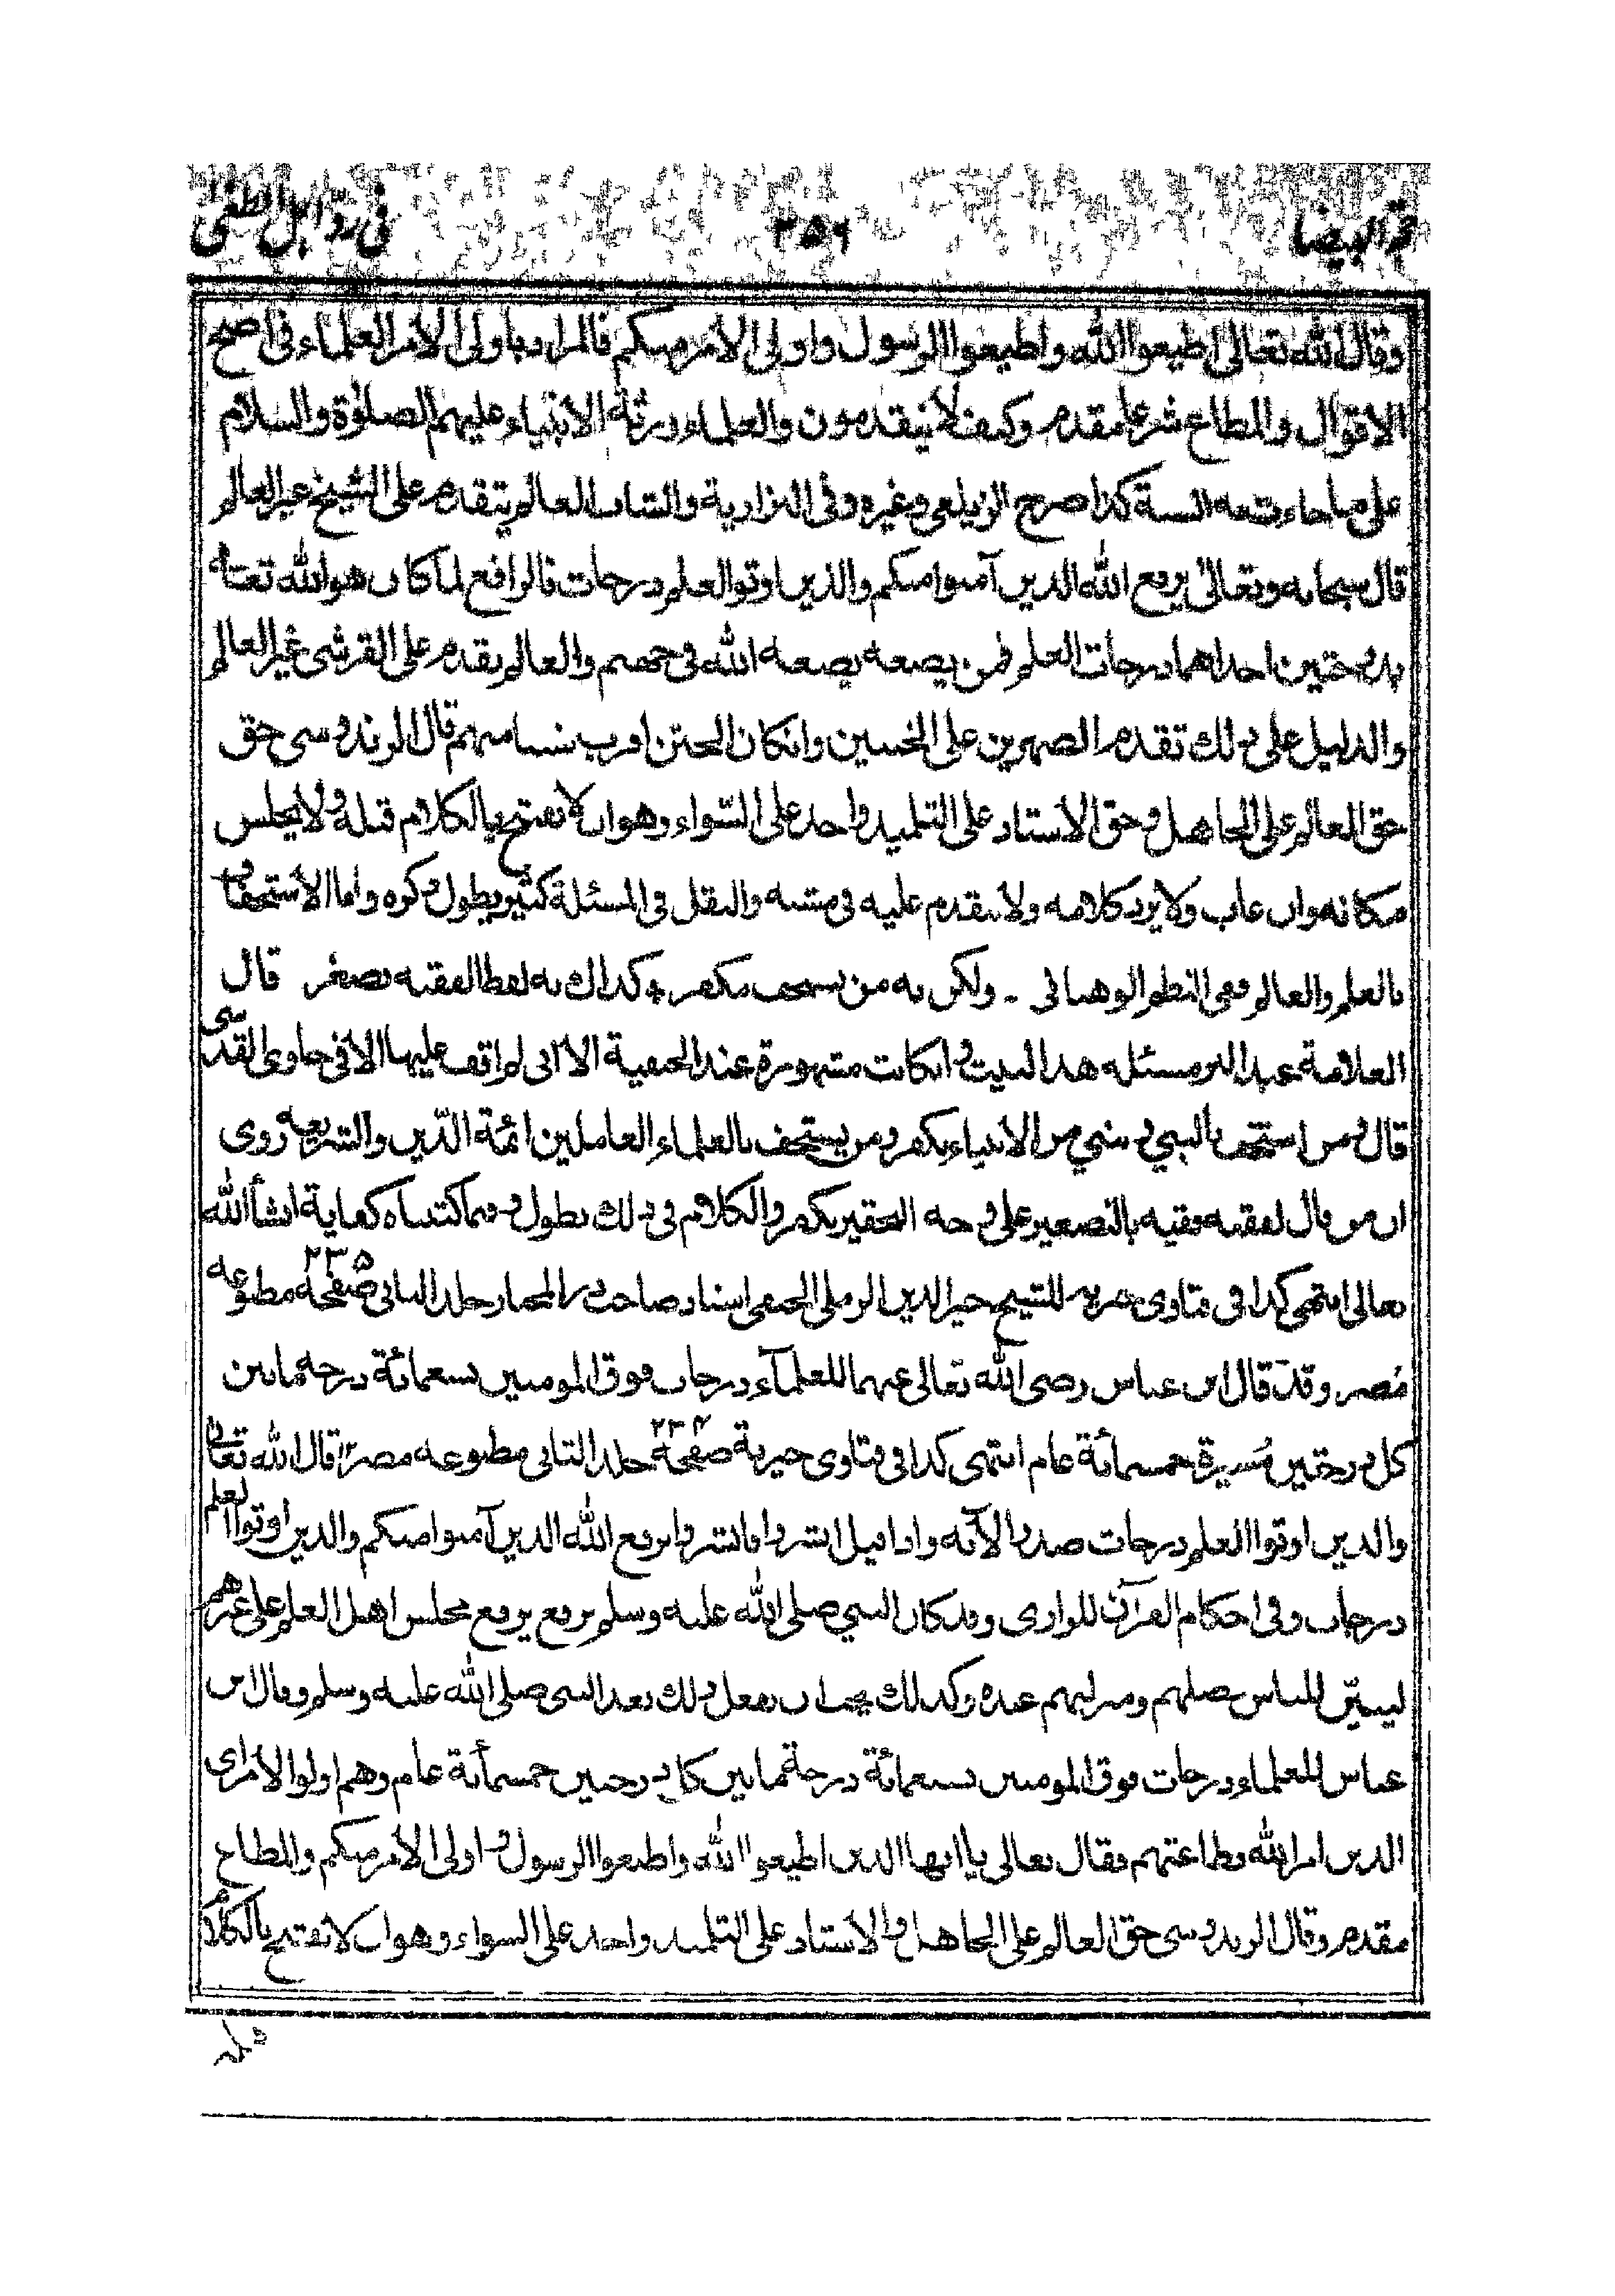 قمر البيضا ٢٥٦ فى رد ابل الطغى
وقال الله تعالى اطيعوا الله واطيعوا الرسول واولى الامر منكم فالمراد باولى الامر العلماء فى اصح
الاقوال والمطاع شرعا مقدم وكيف لا يتقدمون والعلماء ورثة الانبياء عليهم الصلوٰة والسلام
على ما جاءت به السنة كذا صرح الزيلعى وغيره وفى البزازية والشاب العالم يتقدم على الشيخ غير العالم
قال سبحانه وتعالىٰ يرفع الله الذين آمنوا منكم والذين اوتوا العلم درجات فالرافع لما كان هو الله تعالىٰ
احداهما درجات العلم فمن يضعه يضعه الله فى جهنم والعالم يقدم على القرشى غير العالم
والدليل على ذلك تقدم الصهرين على الختنين وانكان الختن اقرب نسبا منهم قال الزندوسى حق
حق العالم على الجاهل وحق الاستاد على التلميذ واحد على السّواء وهو ان لا يفتتح بالكلام قبله ولا يجلس
مكانه وان غاب ولا يرد كلامه ولا يتقدم عليه فى مشيه والنقل فى المسئلة كثير يطول ذكره واما الاستخفاف
بالعلم والعالم ففى النظم الوهبانى - ولكن به من يستخف مكفر ٭ كذاك به لفظ الفقيه يصغر قال
العلامة عبد البر مسئله هذا البيت وانكانت مشهورة عند الحنفية الا انى لم اقف عليها الا فى حاوى القدسى
قال ومن استخف بالنبى وبشيء من الانبياء يكفر ومن يستخف بالعلماء العاملين ائمة الدّين والشريعة روى
ان من قال لفقيه فقيه بالتصغير على وجه التحقير يكفر والكلام فى ذلك يطول وفيما كتبناه كفاية انشاٴ الله
تعالى انتهى كذا فى فتاوى خيريه للشيخ خير الدين الرملى الحنفى استاد صاحب در المختار جلد الثانى صفحة ٢٣٥ مطبوعه
مصر وقد قال ابن عباس رضى الله تعالى عنهما للعلمآء درجات فوق المومنين بسعمائة درجه ما بين
كل درجتين مسيرة خمسمائة عام انتهى كذا فى فتاوى خيرية صفحة ٢٣٤ جلد الثانى مطبوعه مصر قال الله تعالىٰ
والذين اوتوا العلم درجات صدر الآيه واذا قيل انشزوا فانشزوا يرفع الله الذين آمنوا منكم والذين اوتوا العلم
درجات وفى احكام القرآن للرازى وقد كان النبى صلى الله عليه وسلم يرفع يرفع مجلس اهل العلم على غيرهم
ليبيّن للناس فضلهم ومنزلتهم عنده وكذلك يجب ان يفعل ذلك بعد النبى صلى الله عليه وسلم وقال ابن
عباس للعلماء درجات فوق المومنين بسعمائة درجة ما بين كل درجتين خمسمأئة عام وهم اولوا الامر اى
الذين امر الله بطاعتهم فقال تعالى يا ايها الذين اطيعوا الله واطيعوا الرسول واولى الامر منكم والمطاع
مقدم وقال الزندوسى حق العالم على الجاهل والاستاد على التلميذ واحد على السواء وهو ان لا يفتتح بالكلام
قبله